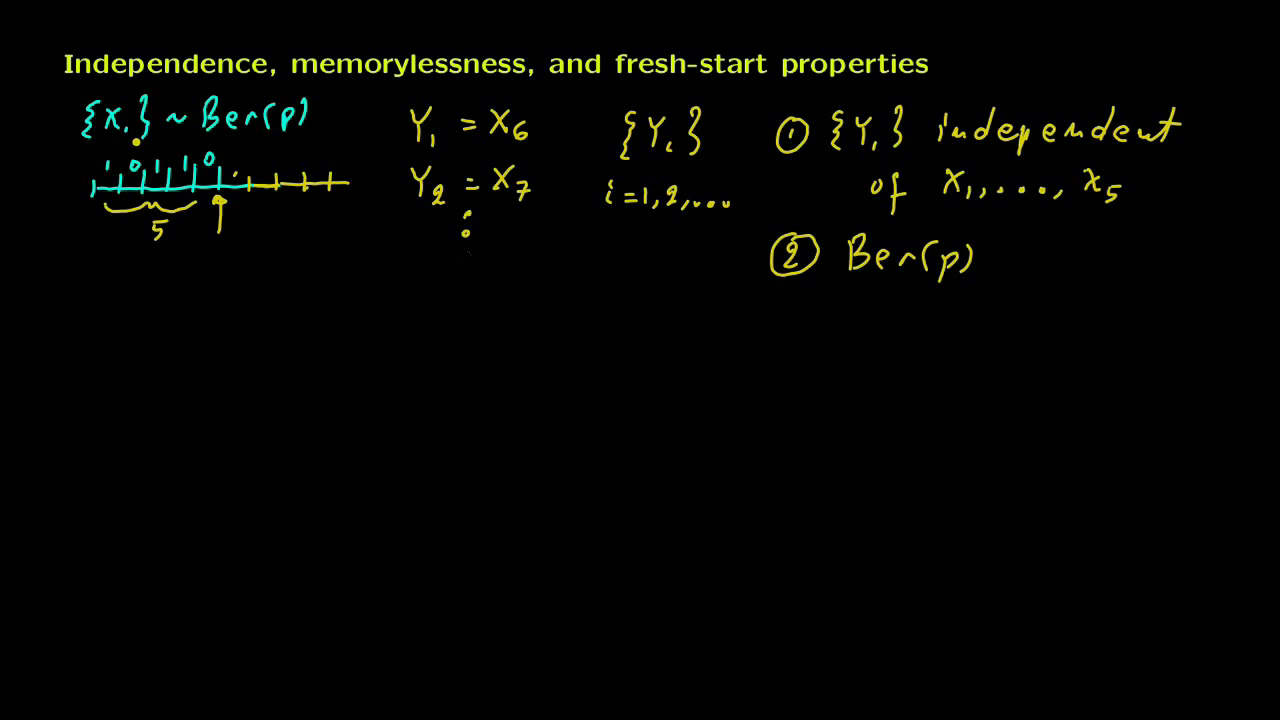 Independence, memorylessness, and fresh-start properties
{Xᵢ} ~ Ber(p)
1 0 1 1 0
5
Y₁ = X₆
Y₂ = X₇
⋮
{Yᵢ}
i=1,2,...
① {Yᵢ} independent
of X₁,..., X₅
② Ber(p)